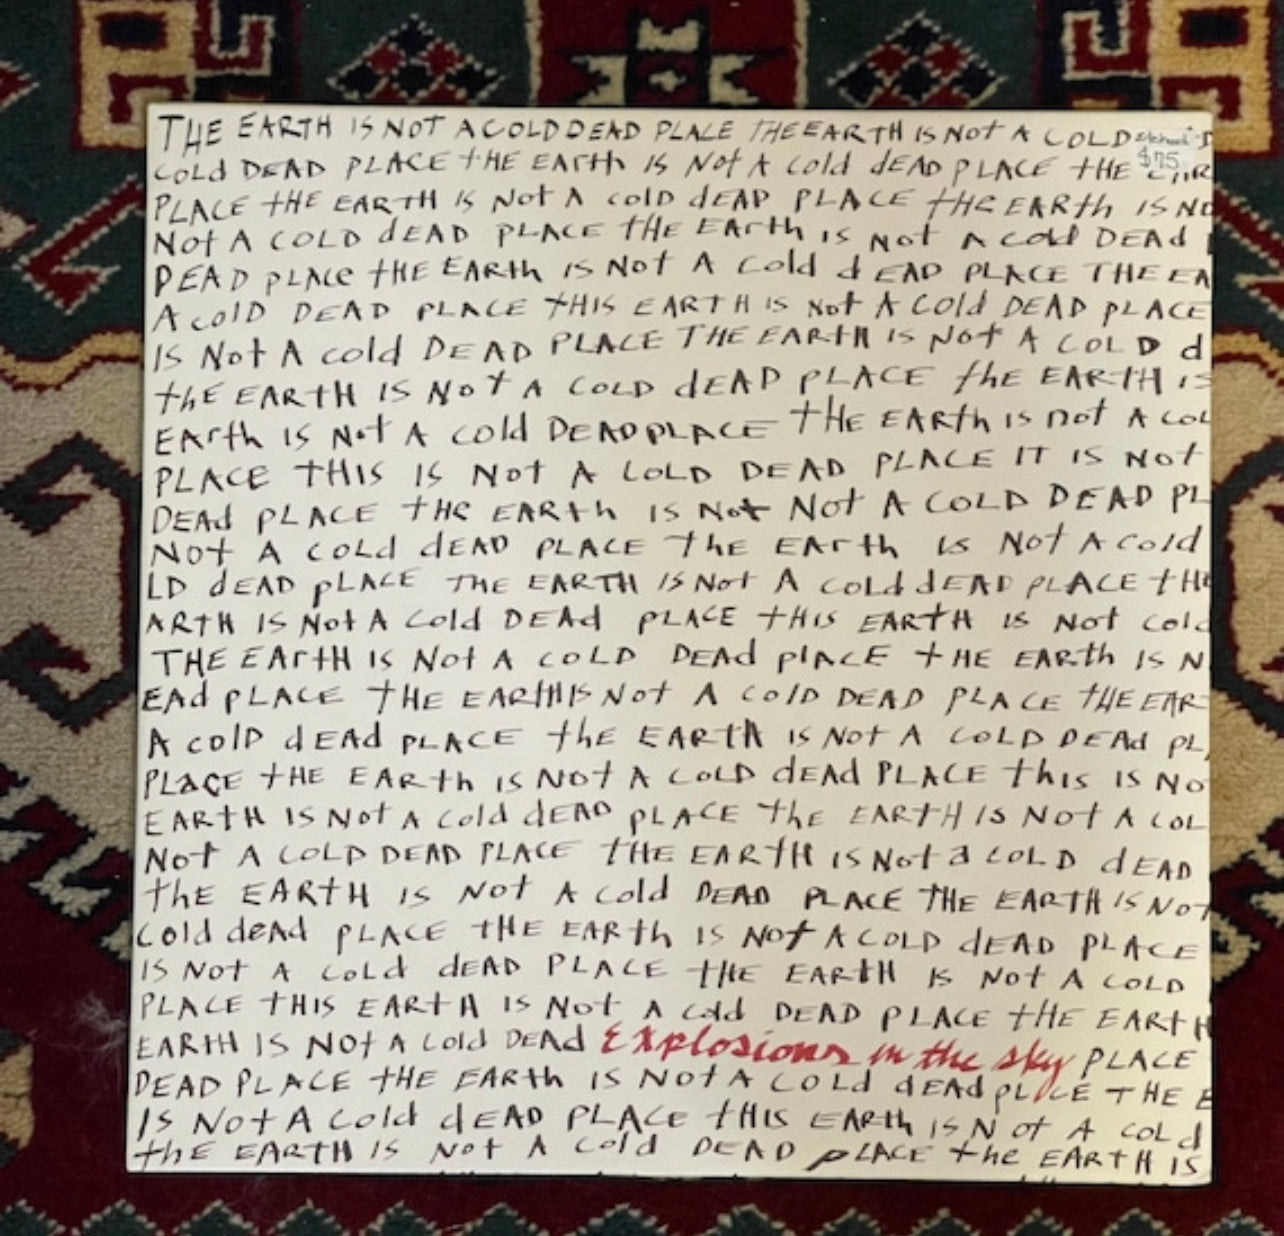 THE EARTH IS NOT A COLD DEAD PLACE THE EARTH IS NOt A COLD
COLD DEAD PLACE tHE EArth IS Not A Cold dEAD PLACE tHE
PLACE tHE EARTH IS Not A cold dEAD PLACE tHE EARth IS NO
Not A COLD dEAD PLACE tHE EArth IS Not A cold DEAd
DEAD PLACe tHE EARth IS Not A Cold dEAD PLACE THE EA
A colD DEAD PLACE tHIS EARTH IS Not A Cold DEAD pLACE
IS Not A cold DEAD PLACE THE EARtH IS Not A COLD d
tHE EARtH IS Not A COLD dEAD PLACE the EARTH IS
EArth IS Not A cold DEAD PLACE tHE EARth IS not A COL
PLACE tHIS IS Not A COLD DEAD PLACE IT IS Not
DEAd PLACE tHe EARth IS Not Not A COLD DEAD PL
Not A COLd dEAD PLACE the EArth IS Not A Cold
LD dEAD pLACE THE EARTH IS Not A Cold dEAD PLACE tHE
ARTH IS Not A Cold DEAd PLACE tHIS EARtH IS Not Cold
THE EArtH IS Not A COLD DEAd plACE tHE EARth IS N
EAd pLACE tHE EARtH IS Not A COlD DEAD PLACE tHE EAR
A COlD dEAd pLACE the EARtH IS Not A COLD DEAd pL
PLACE tHE EARth IS Not A COLD dEAd PLACE this IS No
EARtH IS Not A Cold dEAD PLACE the EARtH IS Not A COL
Not A COLD DEAD PLACE tHE EARtH IS Not a COLD dEAD
tHE EARtH IS Not A Cold DEAD PLACE THE EARTH IS Not
Cold deAd PLACE tHE EARth IS Not A COLD dEAD PLACE
IS Not A Cold dEAD PLACE tHE EARtH IS Not A COLD
PLACE tHIS EARtH IS Not A Cold DEAD PLACE tHE EARtH
EARtH IS Not A Cold DEAD Explosions in the sky PLACE
DEAD PLACE tHE EARth IS Not A COLd dEAd pLACE THE E
IS Not A Cold dEAD PLACE tHIS EARth IS Not A COLd
tHE EARtH IS Not A Cold DEAD pLACE the EARtH IS
$75